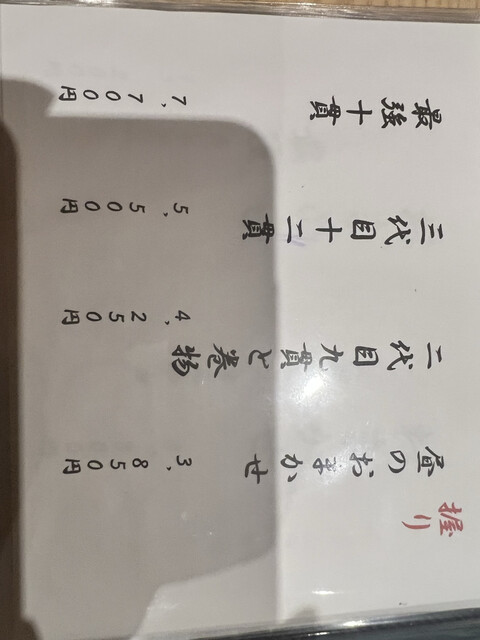 握り
昼のおまかせ 3,850円
二代目九貫と巻物 4,250円
三代目十二貫 5,500円
最強十貫 7,700円